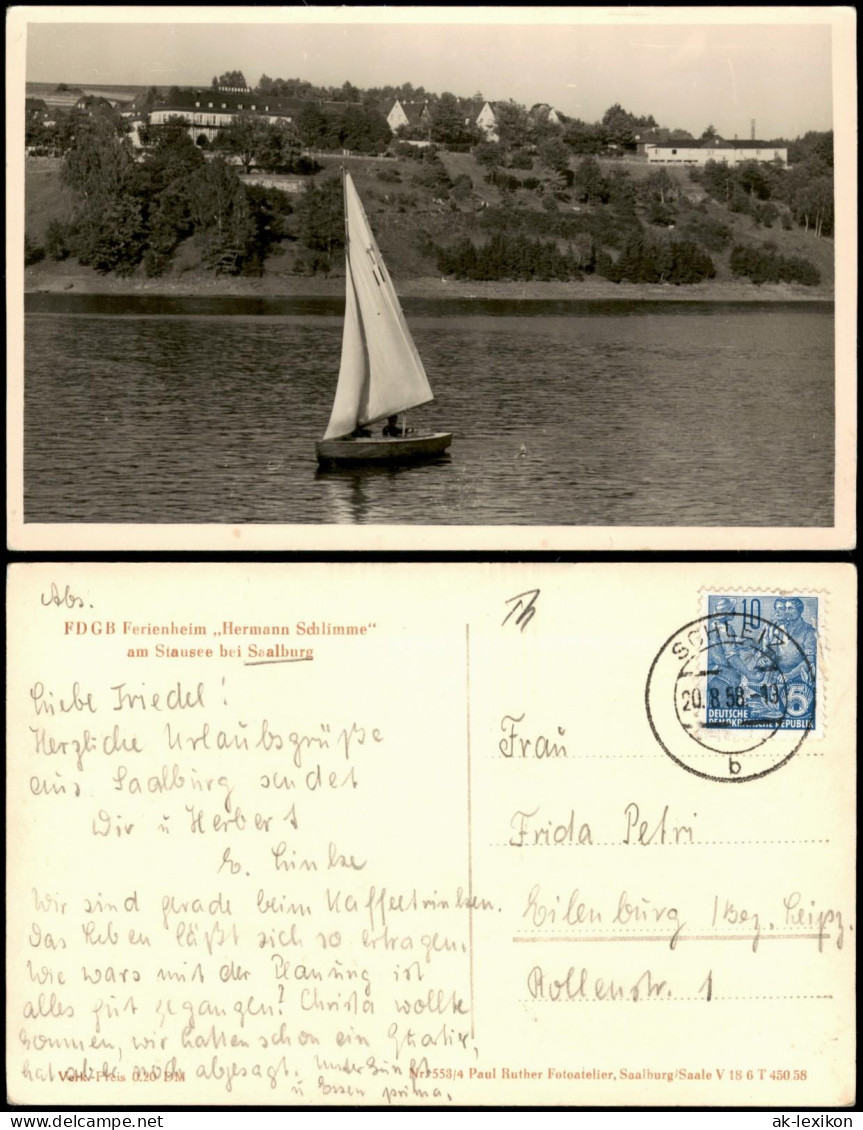 Abs.
FDGB Ferienheim „Hermann Schlimme"
am Stausee bei Saalburg
Liebe Friedel!
Herzliche Urlaubsgrüße
aus Saalburg sendet
Dir u Herbert
E. Linke
Wir sind gerade beim Kaffeetrinken.
Das Leben läßt sich so ertragen.
Wie wars mit der Planung ist
alles gut gegangen? Christa wollte
kommen, wir hatten schon ein Quartier,
hat aber noch abgesagt. Unterkunft
u Essen prima.
Verk.-Preis 0.20 DM
10
SCHLEIZ
20.8.58.-10
b
DEUTSCHE
DEMOKRATISCHE REPUBLIK
Frau
Frida Petri
Eilenburg /Bez. Leipz.
Rollenstr. 1
Nr. 553/4 Paul Ruther Fotoatelier, Saalburg/Saale V 18 6 T 450 58
ak-lexikon